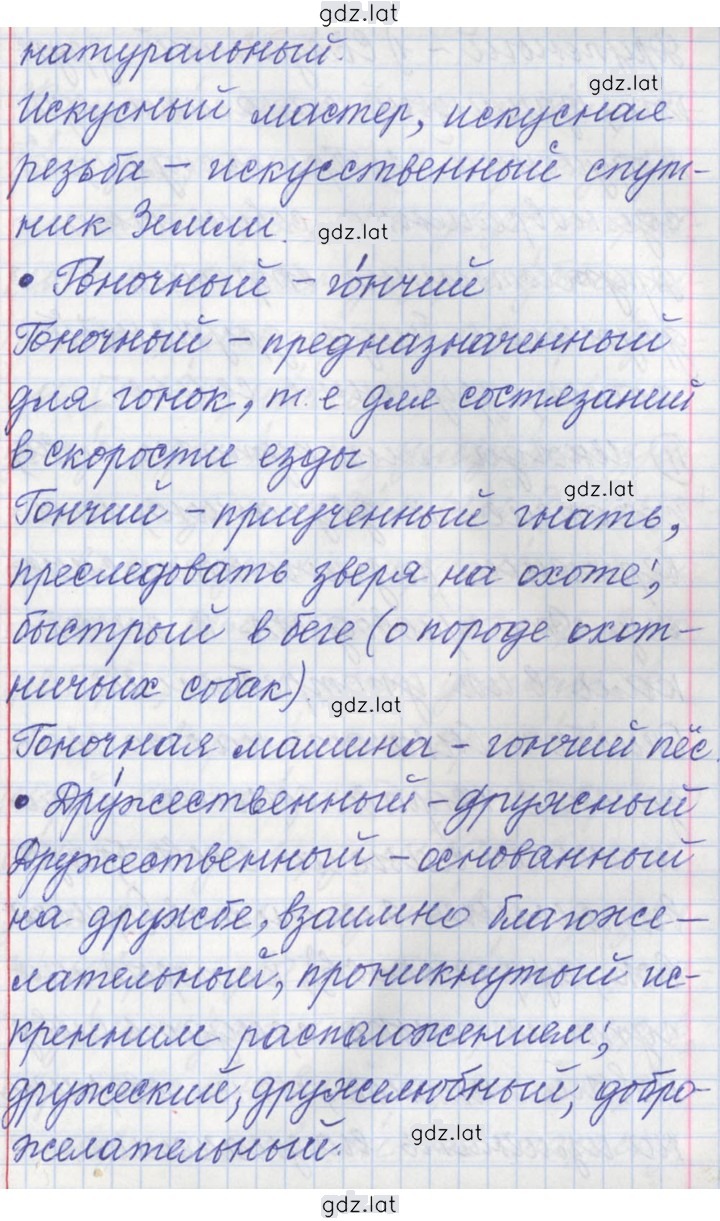 gdz.lat
натуральный.
gdz.lat
Искусный мастер, искусная
резьба – искусственный спут-
ник Земли.
gdz.lat
• Го́ночный – го́нчий
Гоночный – предназначенный
для гонок, т. е для состязаний
в скорости езды
gdz.lat
Гончий – приученный гнать,
преследовать зверя на охоте;
быстрый в беге (о породе охот-
ничьих собак).
gdz.lat
Гоночная машина – гончий пёс.
• Дру́жественный – дружный
Дружественный – основанный
на дружбе, взаимно благоже-
лательный, проникнутый ис-
кренним расположением;
дружеский, дружелюбный, добро-
желательный.
gdz.lat
gdz.lat